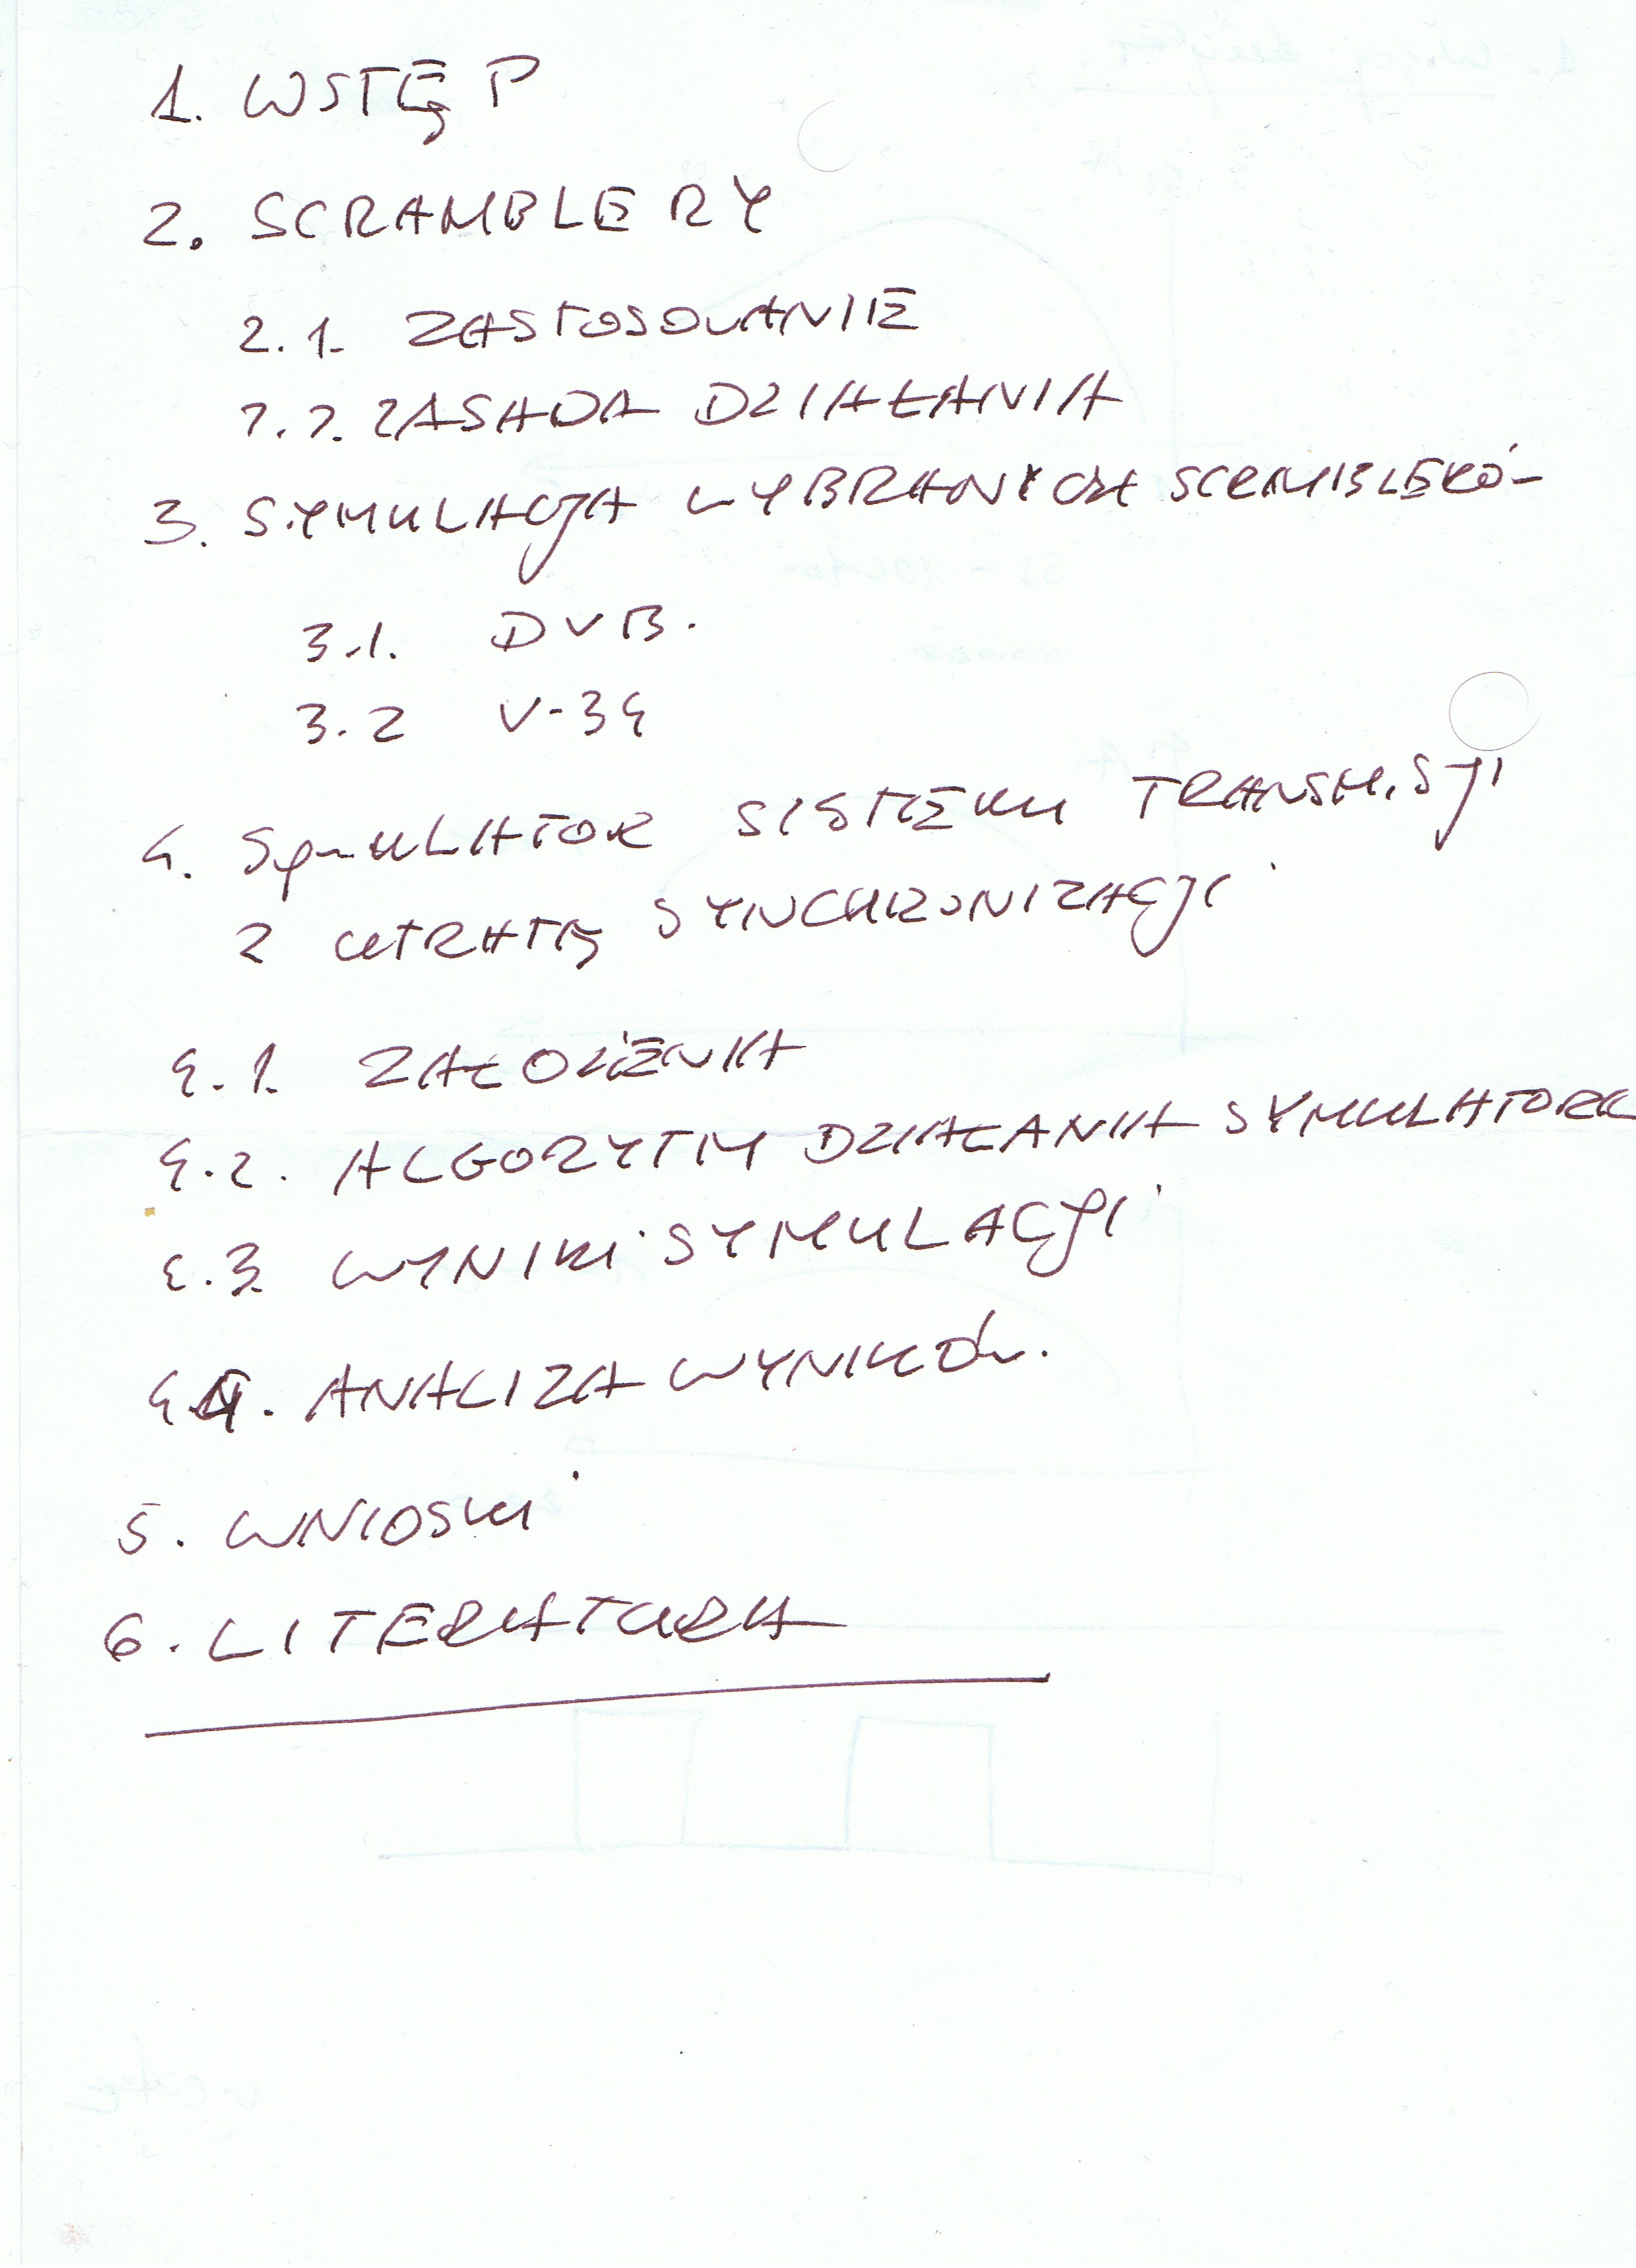 1. WSTĘP
2. SCRAMBLERY
2.1. ZASTOSOWANIE
2.2. ZASADA DZIAŁANIA
3. SYMULACJA WYBRANYCH SCRAMBLERÓW
3.1. DVB.
3.2 V-34
4. SYMULATOR SYSTEMU TRANSMISJI
Z UTRATĄ SYNCHRONIZACJI
4.1. ZAŁOŻENIA
4.2. ALGORYTM DZIAŁANIA SYMULATORA
4.3. WYNIKI SYMULACJI
4.4. ANALIZA WYNIKÓW.
5. WNIOSKI
6. LITERATURA